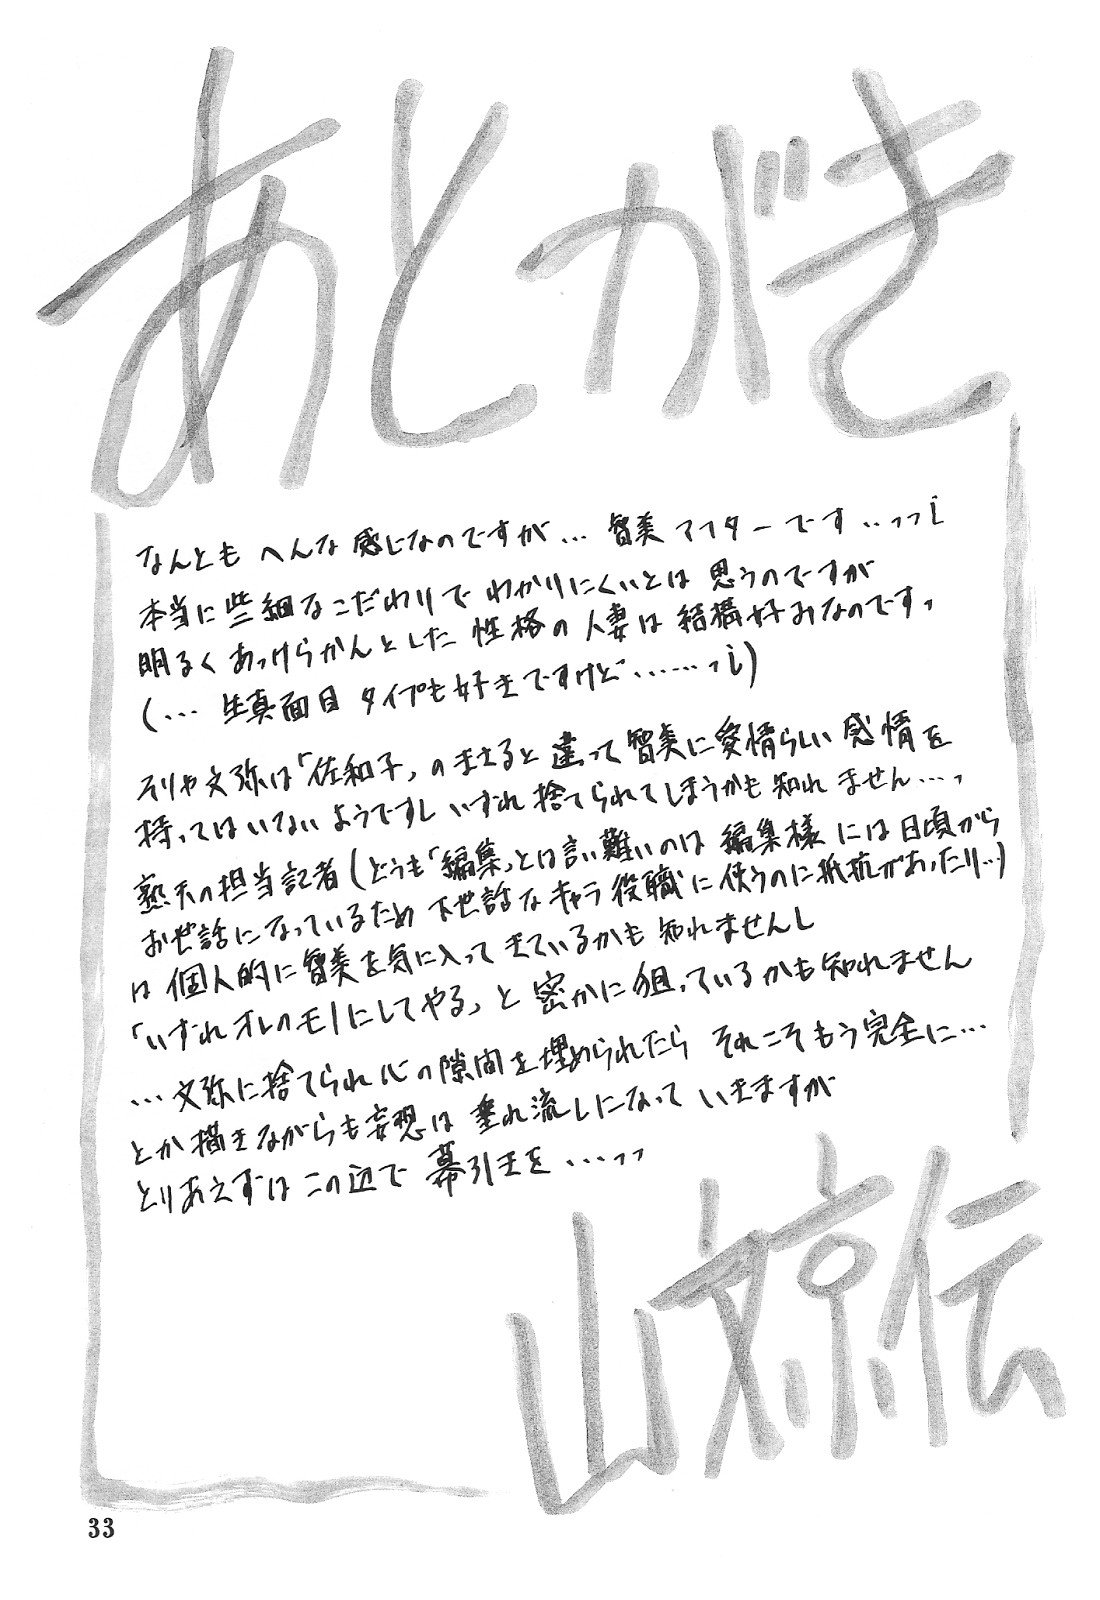 あとがき
なんとも へんな 感じなのですが… 智美 アフター です…っっ!
本当に 些細な こだわりで わかりにくいとは 思うのですが
明るく あっけらかんとした 性格の 人妻は 結構好みなのです。
(… 生真面目 タイプも 好きですけど……っ!)
そりゃ文弥は「佐和子」の まさると 違って 智美に 愛情らしい 感情を
持ってはいない ようですし いずれ 捨てられてしまうかも 知れ ません…。
熟天の担当記者(どうも「編集」とは言い難いのは 編集様 には 日頃から
お世話になっているため 下世話な キャラ 役職に 使うのに 抵抗があったり…)
は 個人的に 智美を気に入って きているかも 知れませんし
「いずれ オレのモノにしてやる」と 密かに 狙っているかも 知れません
… 文弥に 捨てられ 心の 隙間を 埋められたら それこそもう 完全に…
とか 描きながらも 妄想は 垂れ流しになって いきますが
とりあえずは この辺で 幕引きを …っっ
山文京伝
33